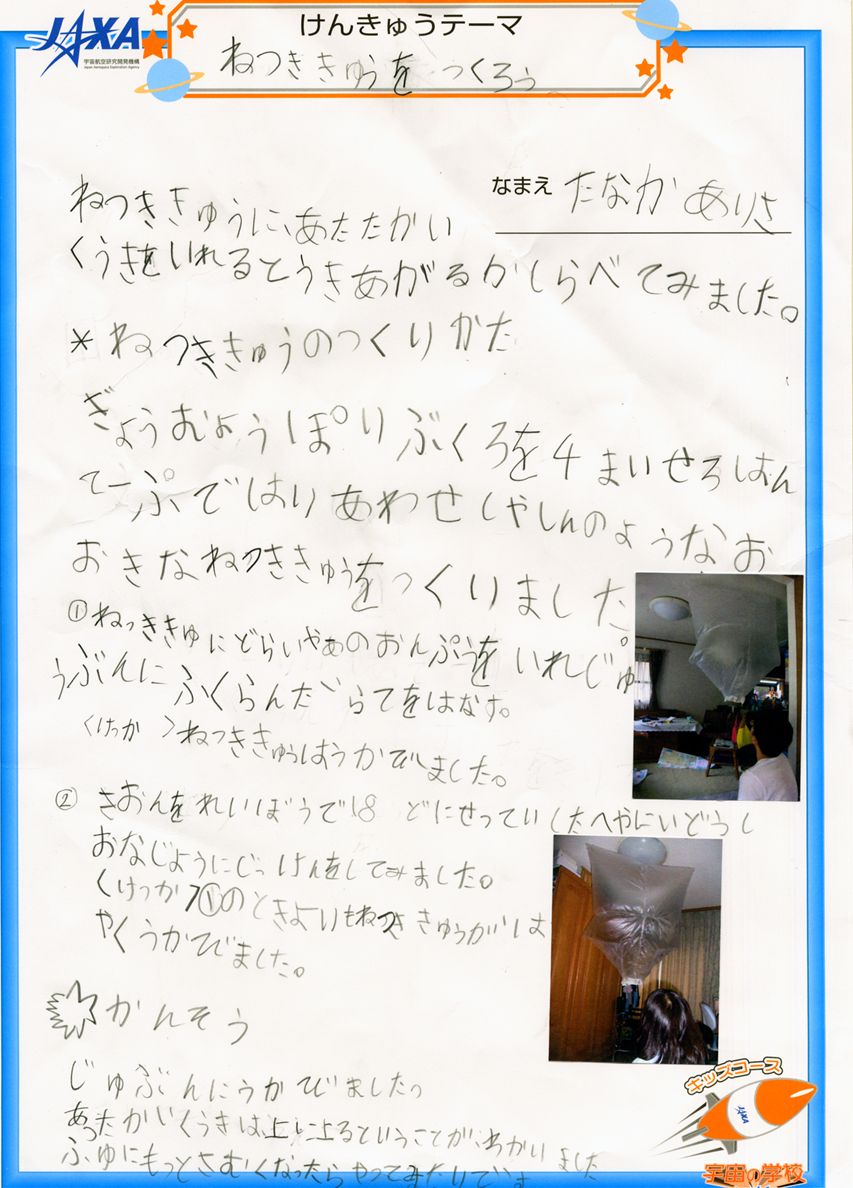 JAXA
宇宙航空研究開発機構
Japan Aerospace Exploration Agency
けんきゅうテーマ
ねつききゅうを つくろう
なまえ たなか ありさ
ねつききゅうに、あたたかい
くうきをいれるとうきあがるかしらべてみました。
* ねつききゅうのつくりかた
ぎょうむようぽりぶくろを4まいせろはん
てーぷではりあわせしゃしんのようなお
おきなねつききゅうをつくりました
①ねつききゅにどらいやあのおんぷうをいれじゅ
うぶんにふくらんだらてをはなす。
〈けっか 〉ねつききゅうはうかびました。
② きおんをれいぼうで18 どにせっていしたへやにいどうし
おなじようにじっけんをしてみました。
くけっか7①のときよりもねつききゅうがは
やくうかびました。
かんそう
じゅぶんにうかびました。
あったかいくうきは上に上るということがわかりました
ふゆにもっとさむくなったらやってみたいです
キッズコース
JAXA
宇宙の学校